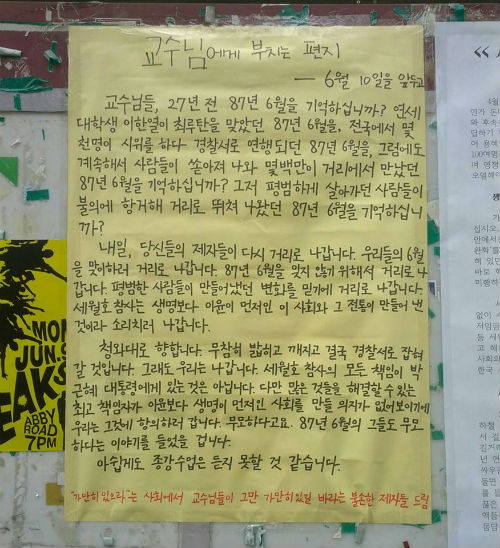 교수님에게 부치는 편지
— 6월 10일을 앞두고
교수님들, 27년 전 87년 6월을 기억하십니까? 연세
대학생 이한열이 최루탄을 맞았던 87년 6월을, 전국에서 몇
천명이 시위를 하다 경찰서로 연행되던 87년 6월을, 그럼에도
계속해서 사람들이 쏟아져 나와 몇백만이 거리에서 만났던
87년 6월을 기억하십니까? 그저 평범하게 살아가던 사람들이
불의에 항거해 거리로 뛰쳐 나왔던 87년 6월을 기억하십니
까?
내일, 당신들의 제자들이 다시 거리로 나갑니다. 우리들의 6월
을 맞이하러 거리로 나갑니다. 87년 6월을 잊지 않기 위해서 거리로 나
갑니다. 평범한 사람들이 만들어냈던 변화를 믿기에 거리로 나갑니다.
세월호 참사는 생명보다 이윤이 먼저인 이 사회와 그 전통이 만들어 낸
것이라 소리치러 나갑니다.
청와대로 향합니다. 무참히 밟히고 깨지고 결국 경찰서로 잡혀
갈 것입니다. 그래도 우리는 나갑니다. 세월호 참사의 모든 책임이 박
근혜 대통령에게 있는 것은 아닙니다. 다만 많은 것들을 해결할 수 있는
최고 책임자가 이윤보다 생명이 먼저인 사회를 만들 의지가 없어보이기에
우리는 그것에 항의하러 갑니다. 무모하다고요. 87년 6월의 그들도 무모
하다는 이야기를 들었을 겁니다.
아쉽게도 종강수업은 듣지 못할 것 같습니다.
"가만히 있으라"는 사회에서 교수님들이 그만 가만히 있길 바라는 불손한 제자들 드림
MON
JUN.9
EAKS
ABBY
ROAD
7PM